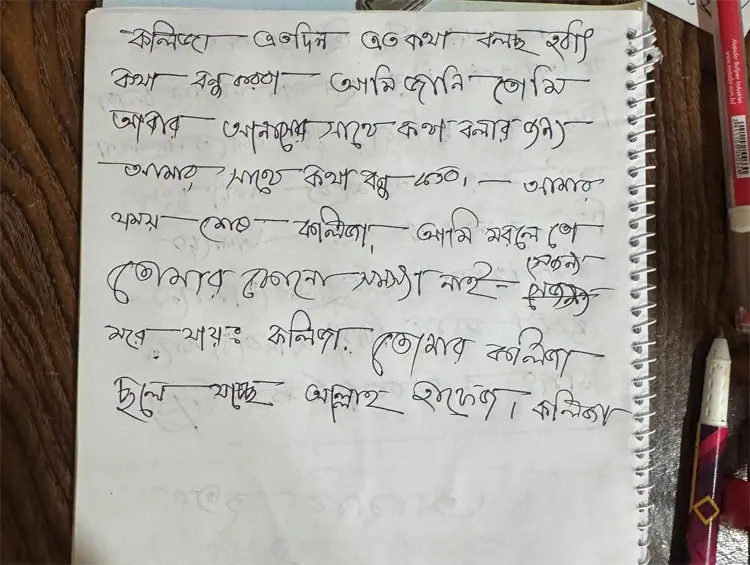 কলিজা এতদিন এত কথা বলছ হঠাৎ
কথা বন্ধ করলা আমি জানি তোমি
আবার আনসের সাথে কথা বলার জন্য
আমার সাথে কথা বন্ধ। আমার
সময় শেষ কলিজা, আমি মরলে তো
তোমার কোনো সমস্যা নাই- সেজন্য
মরে যায়ঃ কলিজা. তোমার কলিজা
ছলে যাচ্ছে আল্লাহ হাফেজ। কলিজা
Matador